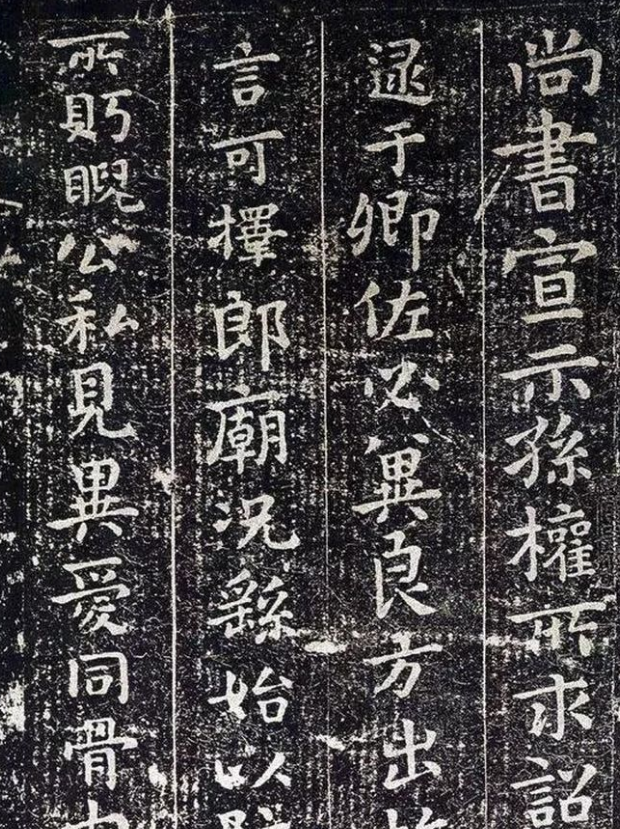 尚書宣示孫權所求詔
逮于卿佐必冀良方出
言可擇郎廟況繇始以
所眄睨公私見異愛同骨